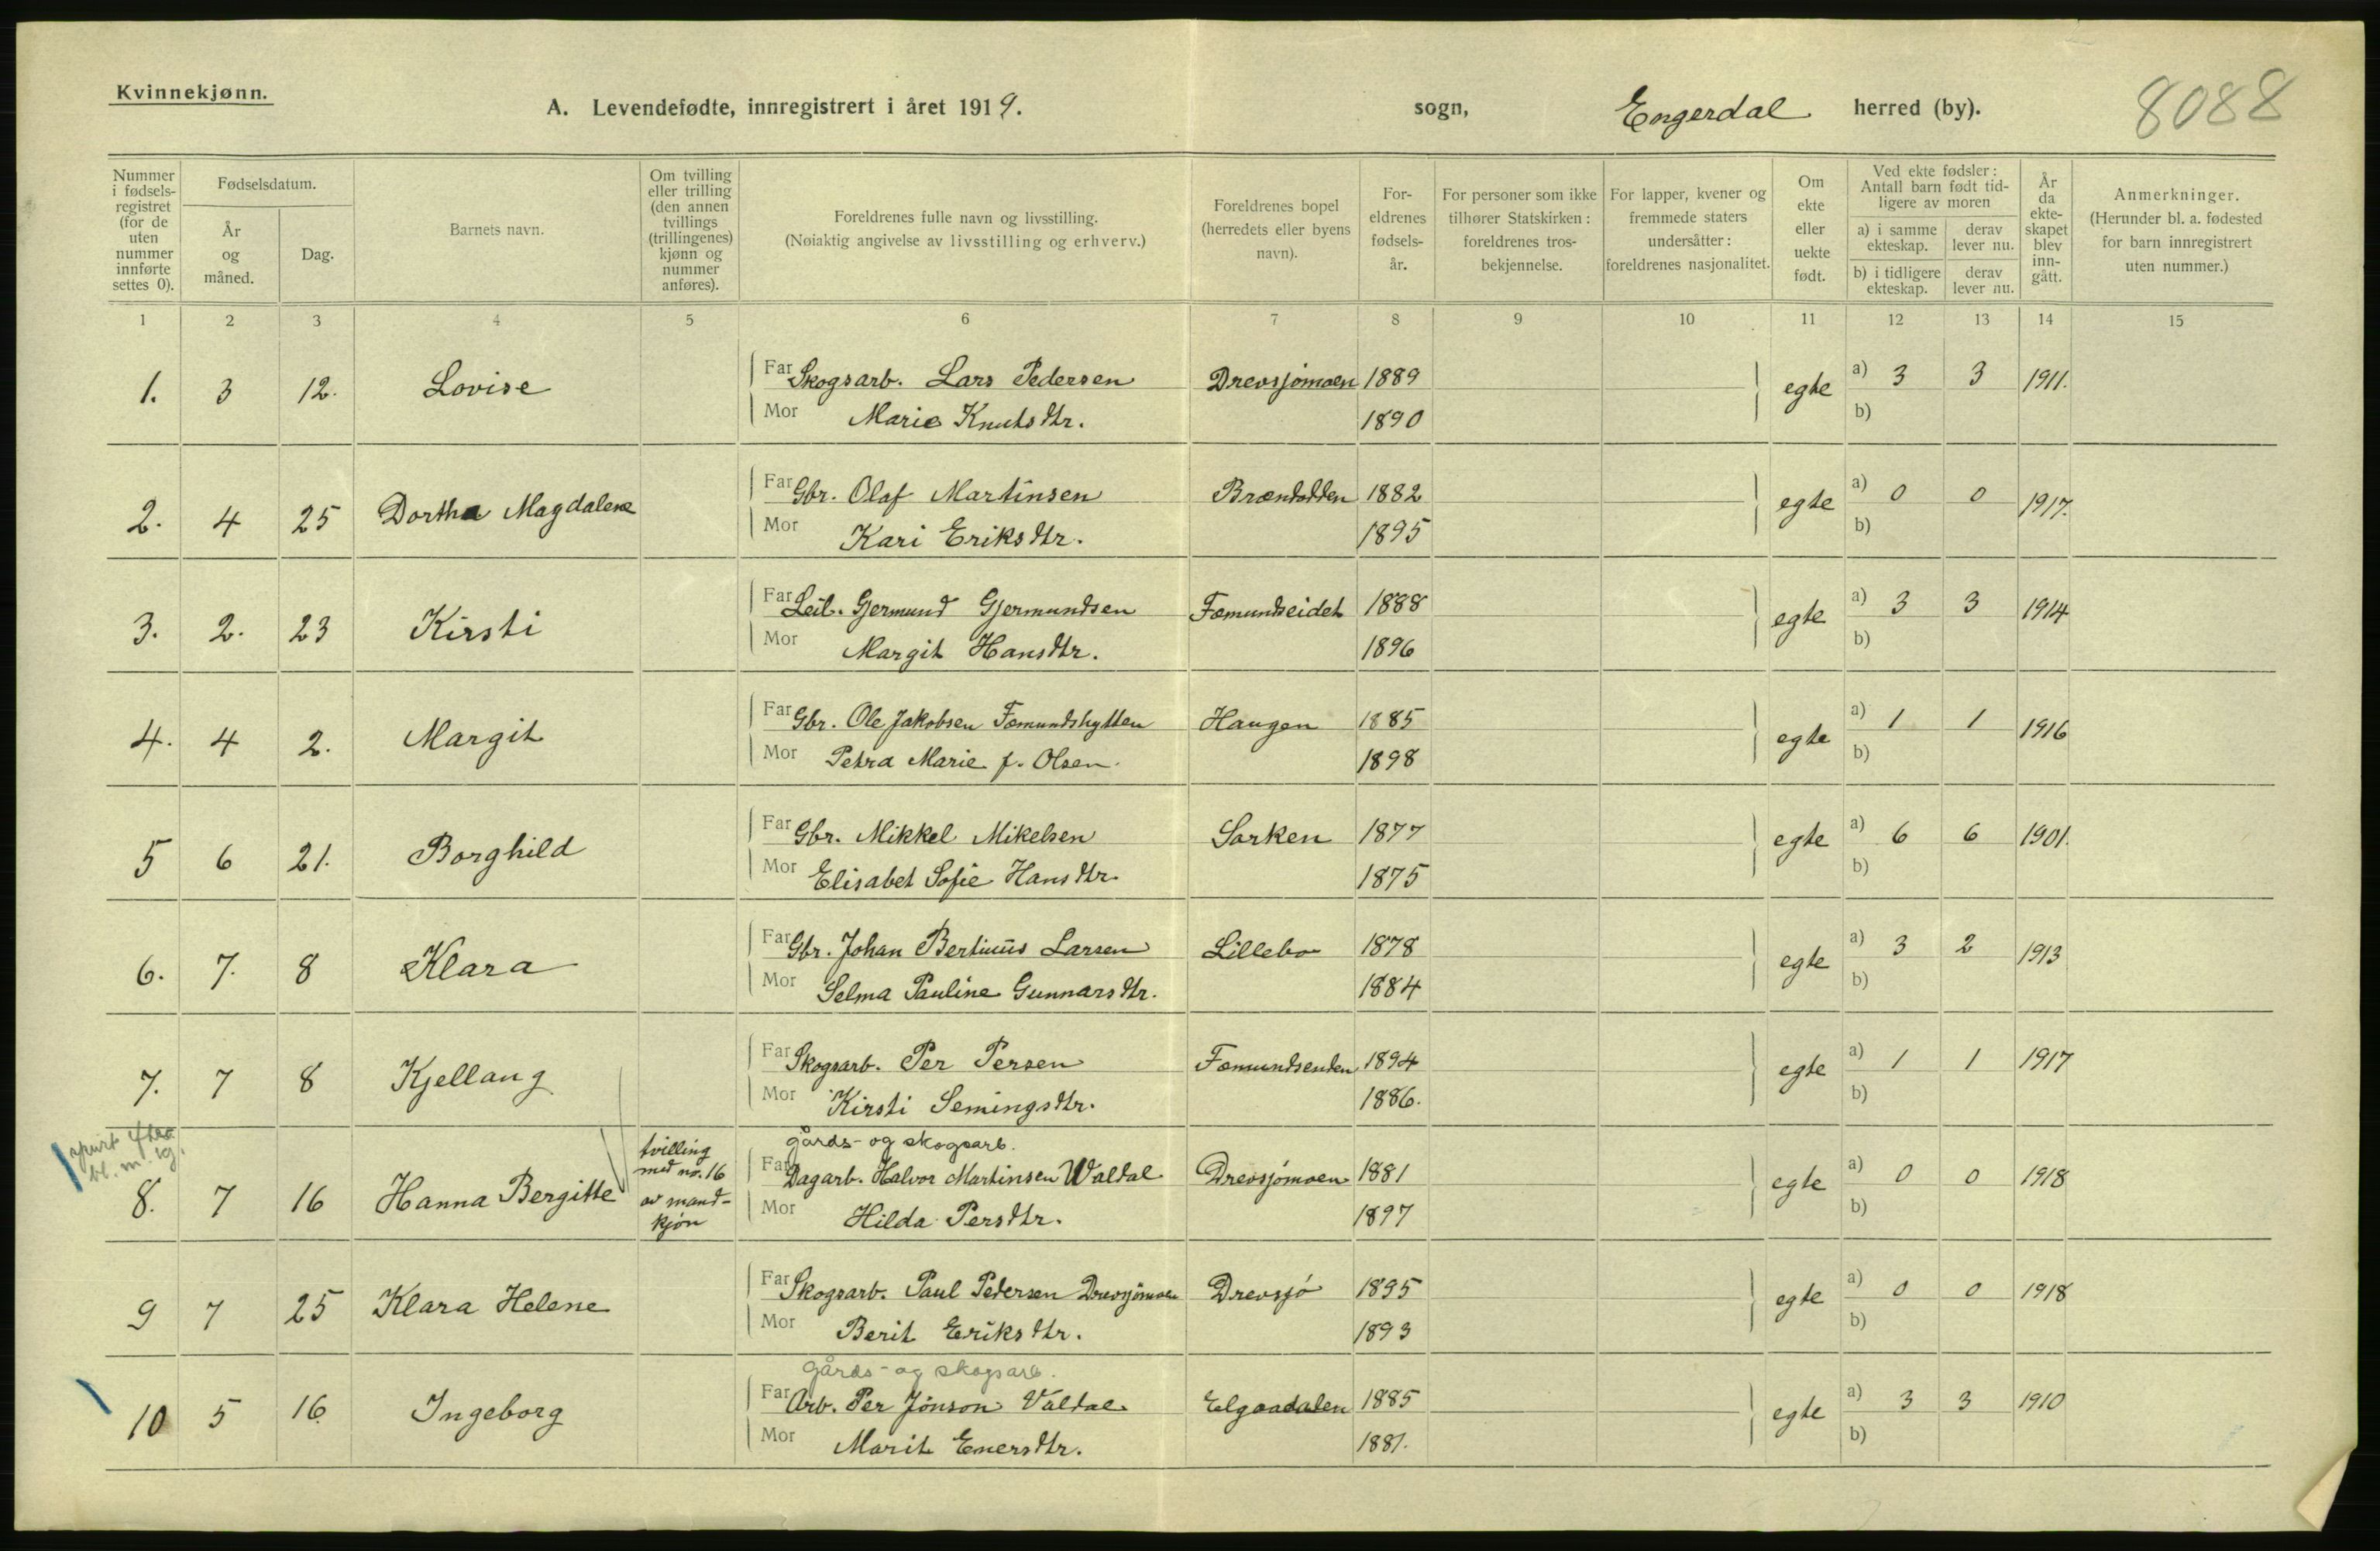 Kvinnekjønn.
A. Levendefødte, innregistrert i året 1919. sogn, Engerdal herred (by). 8088
Nummer i fødsels- registret (for de uten nummer innførte settes 0).
Fødselsdatum.
År og måned.
Dag.
Barnets navn.
Om tvilling eller trilling (den annen tvillings (trillingenes) kjønn og nummer anføres).
Foreldrenes fulle navn og livsstilling.
(Nøiaktig angivelse av livsstilling og erhverv.)
Foreldrenes bopel (herredets eller byens navn).
For- eldrenes fødsels- år.
For personer som ikke tilhører Statskirken: foreldrenes tros- bekjennelse.
For lapper, kvener og fremmede staters undersåtter: foreldrenes nasjonalitet.
Om ekte eller uekte født.
Ved ekte fødsler: Antall barn født tid- ligere av moren
a) i samme ekteskap.
derav lever nu.
b) i tidligere ekteskap.
derav lever nu.
År da ekte- skapet blev inn- gått.
Anmerkninger.
(Herunder bl. a. fødested for barn innregistrert uten nummer.)
1 2 3 4 5 6 7 8 9 10 11 12 13 14 15
1. 3 12. Lovise Far Skogsarb. Lars Pedersen Drevsjømoen 1889 egte a) 3 3 1911.
Mor Marie Knutsdtr. 1890 b)
2. 4 25 Dortha Magdalene Far Gbr. Olaf Martinsen Brændodden 1882 egte a) 0 0 1917.
Mor Kari Eriksdtr. 1895 b)
3. 2. 23 Kirsti Far Leil. Gjermund Gjermundsen Fæmundseidet 1888 egte a) 3 3 1914
Mor Margit Hansdtr. 1896 b)
4. 4 2. Margit Far Gbr. Ole Jakobsen Fæmundshytten Haugen 1885 egte a) 1 1 1916
Mor Petra Marie f. Olsen. 1898 b)
5 6 21. Borghild Far Gbr. Mikkel Mikelsen Sorken 1877 egte a) 6 6 1901.
Mor Elisabet Sofie Hansdtr. 1875 b)
6. 7. 8 Klara Far Gbr. Johan Bertinius Larsen Lillebo 1878 egte a) 3 2 1913
Mor Selma Pauline Gunnarsdtr. 1884 b)
7. 7 8 Kjellaug Far Skogsarb. Per Persen Fæmundsenden 1894 egte a) 1 1 1917
Mor Kirsti Semingsdtr. 1886. b)
gårds- og skogsarb.
8. 7 16 Hanna Bergitte tvilling med no. 16 av mand- kjøn Far Dagarb. Halvor Martinsen Valdal Drevsjømoen 1881 egte a) 0 0 1918
Mor Hilda Persdtr. 1897 b)
9 7 25 Klara Helene Far Skogsarb. Paul Pedersen Drevsjømoen Drevsjø 1895 egte a) 0 0 1918
Mor Berit Eriksdtr. 1893 b)
gårds- og skogsarb.
10 5 16 Ingeborg Far Arb. Per Jonson Valdal Elgaadalen 1885 egte a) 3 3 1910
Mor Marit Enersdtr. 1881. b)